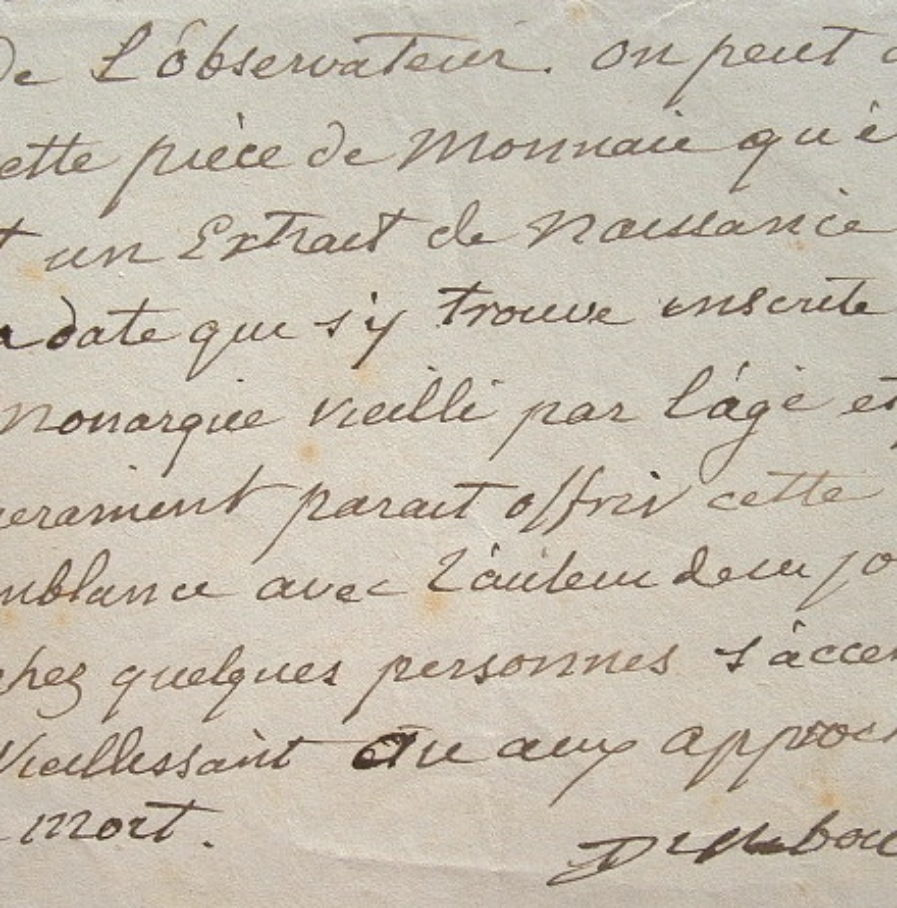 de L'óbservateur. on peut
ette pièce de Monnaie qu'e
t un Extrait de Naissance
a date que s'y trouve inscrite
Monarque vieilli par l'âge et
parait offrir cette
mblance avec l'auteur de
chez quelques personnes s'accen
Vieillissant ou aux approch
mort.